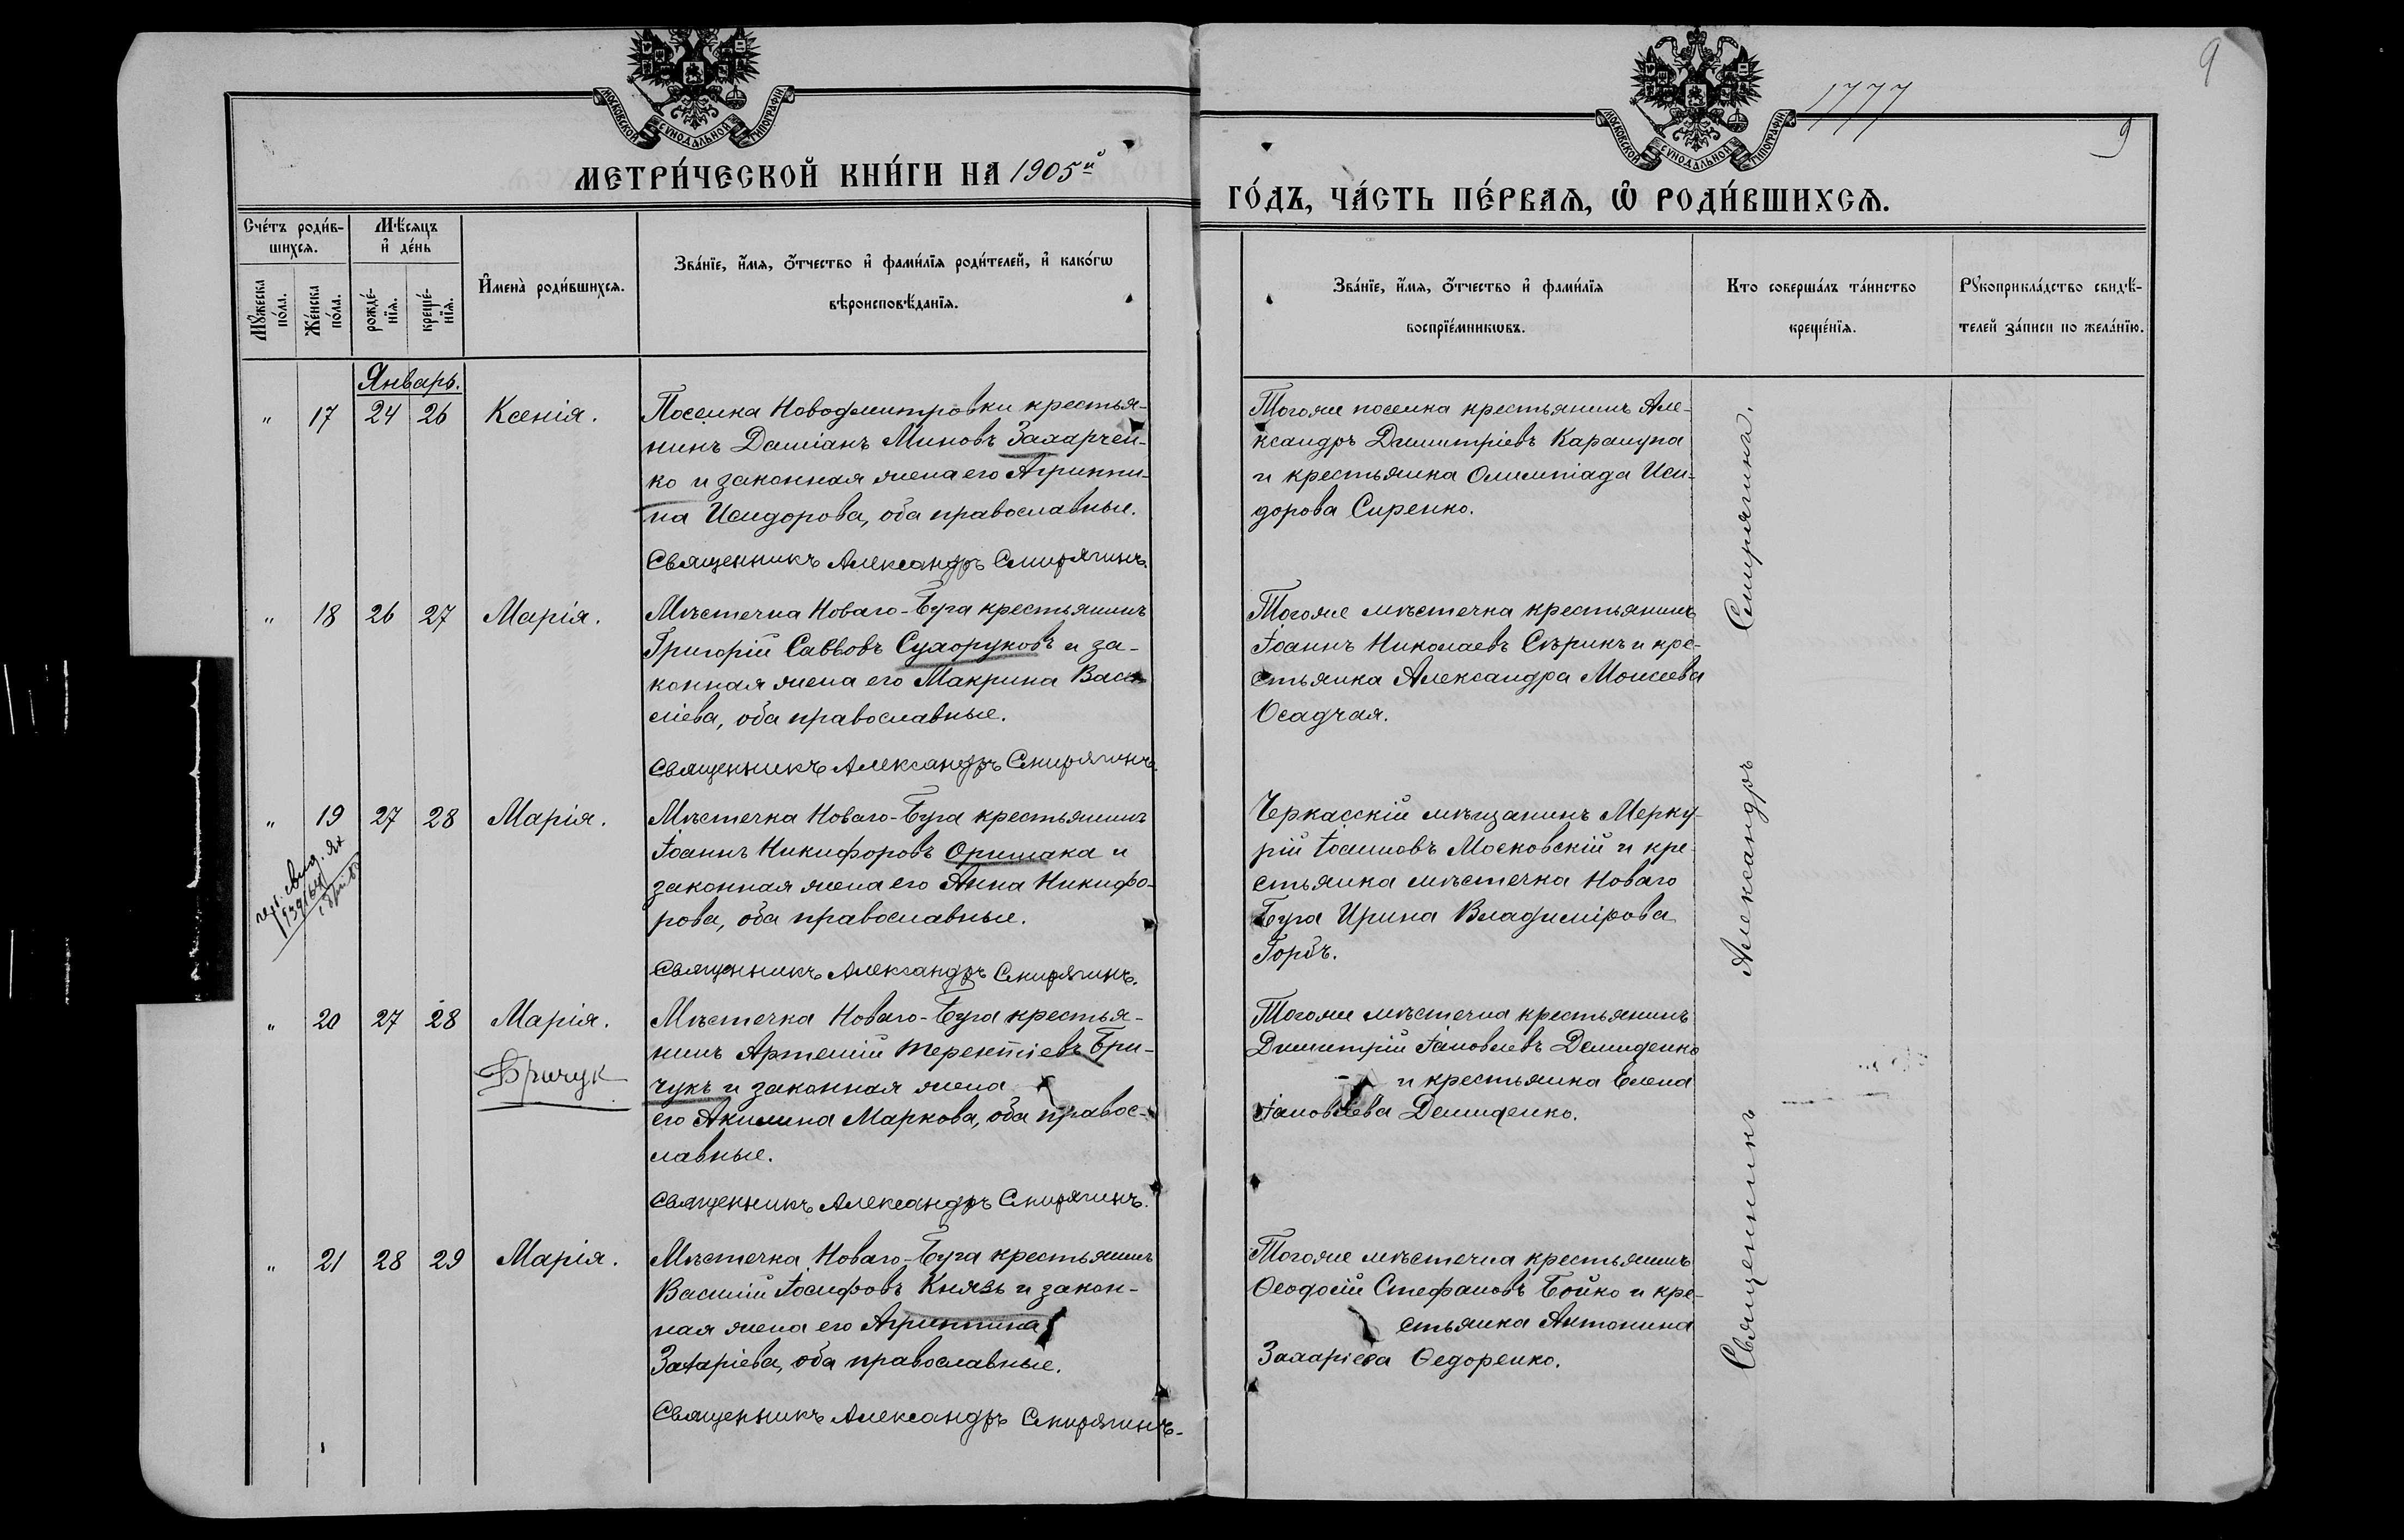 9
1777
9
МОСКОВСКОЙ СѴНОДАЛЬНОЙ ТИПОГРАФІИ
МОСКОВСКОЙ СѴНОДАЛЬНОЙ ТИПОГРАФІИ
МЕТРИ́ЧЕСКОЙ КНИ́ГИ НА 1905й
ГО́ДЪ, ЧА́СТЬ ПЕ́РВАѦ, Ѿ РОДИ́ВШИХСѦ.
Сче́тъ роди́в-
шихсѧ.
Мѣ́сяцъ
и҆ де́нь
Мꙋжеска
по́ла.
Же́нска
по́ла.
рожде́-
нїѧ.
креще́-
нїѧ.
И҆мена̀ роди́вшихсѧ.
Зва́нїе, и҆́мѧ, ѻ҆́тчество и҆ фами́лїѧ роди́телей, и҆ како́гѡ
вѣроисповѣ́данїѧ.
Зва́нїе, и҆́мѧ, ѻ҆́тчество и҆ фами́лїѧ
воспрїе́мникѡвъ.
Кто соверша́лъ та́инство
креще́нїѧ.
Рꙋкоприкла́дство свидѣ́-
телей за́писи по жела́нїю.
Январь.
" 17 24 26 Ксенія.
Поселка Новодмитровки крестья-
нинъ Даміанъ Миновъ Захарчен-
ко и законная жена его Агриппи-
на Исидорова, оба православные.
Священникъ Александръ Смирягинъ.
Тогоже поселка крестьянинъ Але-
ксандръ Димитріевъ Карацупа
и крестьянка Олимпіада Иси-
дорова Сиренко.
" 18 26 27 Марія.
Мѣстечка Новаго-Буга крестьянинъ
Григорій Саввовъ Сухоруковъ и за-
конная жена его Макрина Васи
ліева, оба православные.
Священникъ Александръ Смирягинъ.
Тогоже мѣстечка крестьянинъ
Іоаннъ Николаевъ Сѣрикъ и кре-
стьянка Александра Моисеева
Осадчая.
" 19 27 28 Марія.
Мѣстечка Новаго-Буга крестьянинъ
Іоаннъ Никифоровъ Оришака и
законная жена его Анна Никифо-
рова, оба православные.
Священникъ Александръ Смирягинъ.
Черкасскій мѣщанинъ Мерку-
рій Іоанновъ Московскій и кре-
стьянка мѣстечка Новаго
Буга Ирина Владимірова
Горбъ.
" 20 27 28 Марія.
Бричук
Мѣстечка Новаго-Буга крестья-
нинъ Артемій Терентіевъ Бри-
чукъ и законная жена
его Акилина Маркова, оба правос-
лавные.
Священникъ Александръ Смирягинъ.
Тогоже мѣстечка крестьянинъ
Димитрій Іаковлевъ Демиденко
и крестьянка Елена
Іаковлева Демиденко.
" 21 28 29 Марія.
Мѣстечка Новаго-Буга крестьянинъ
Василій Іосифовъ Князь и закон-
ная жена его Агриппина
Захаріева, оба православные.
Священникъ Александръ Смирягинъ.
Тогоже мѣстечка крестьянинъ
Ѳеодосій Стефановъ Бойко и кре-
стьянка Антонина
Захаріева Ѳедоренко.
Священникъ Александръ Смирягинъ.